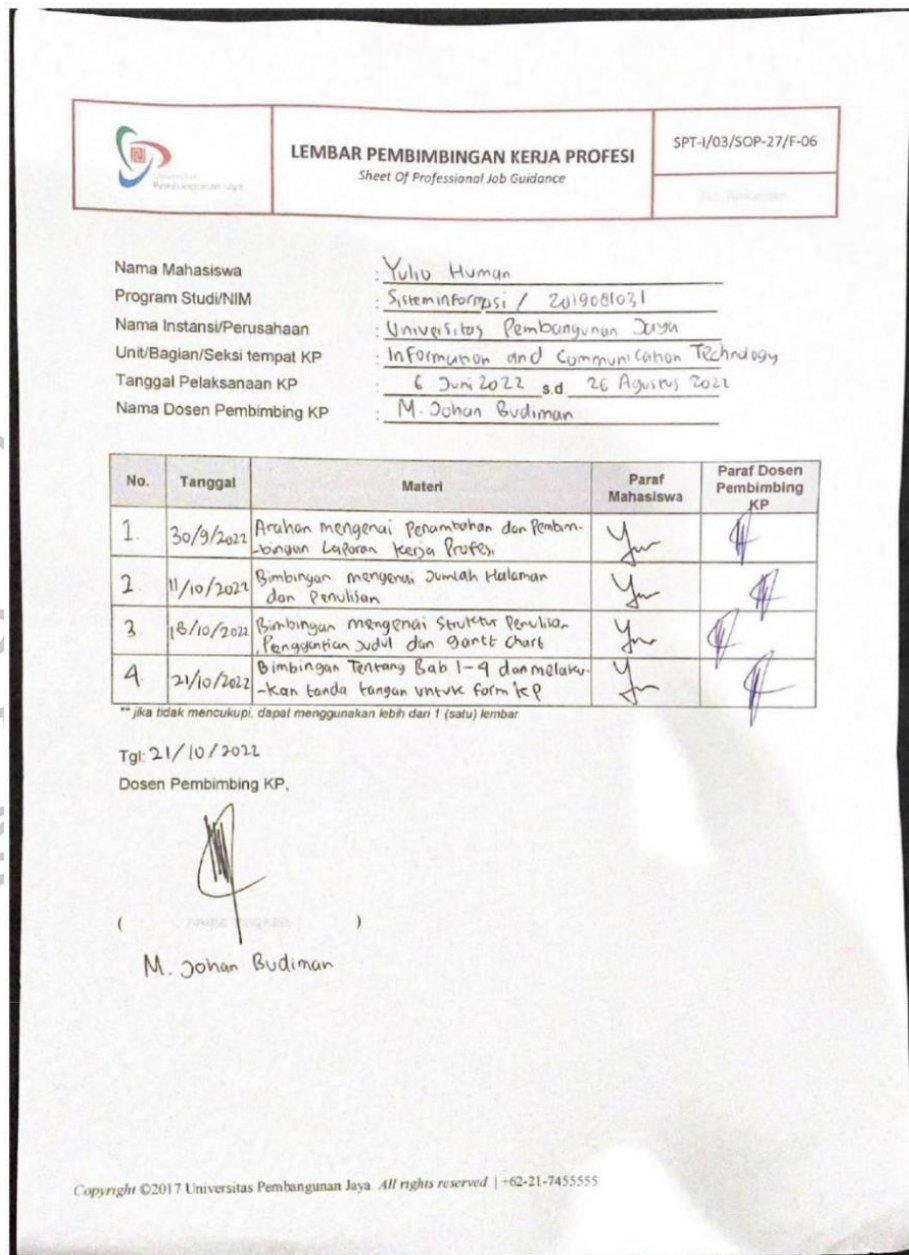 Universitas
Pembangunan Jaya
LEMBAR PEMBIMBINGAN KERJA PROFESI
Sheet Of Professional Job Guidance
SPT-I/03/SOP-27/F-06
Nama Mahasiswa : Yulio Human
Program Studi/NIM : Sisteminformasi / 2019081031
Nama Instansi/Perusahaan : Universitas Pembangunan Jaya
Unit/Bagian/Seksi tempat KP : Information and Communication Technology
Tanggal Pelaksanaan KP : 6 Juni 2022 s.d 26 Agustus 2022
Nama Dosen Pembimbing KP : M. Johan Budiman
No. Tanggal Materi Paraf Mahasiswa Paraf Dosen Pembimbing KP
1. 30/9/2022 Arahan mengenai Penambahan dan Pembim-
-bingan Laporan Kerja Profesi
2. 11/10/2022 Bimbingan mengenai Jumlah Halaman
dan Penulisan
3. 18/10/2022 Bimbingan mengenai Struktur Penulisan
, Penggantian Judul dan gantt chart
4. 21/10/2022 Bimbingan Tentang Bab 1-4 dan melaku-
-kan tanda tangan untuk form KP
** jika tidak mencukupi, dapat menggunakan lebih dari 1 (satu) lembar
Tgl: 21/10/2022
Dosen Pembimbing KP,
( )
M. Johan Budiman
Copyright ©2017 Universitas Pembangunan Jaya. All rights reserved | +62-21-7455555